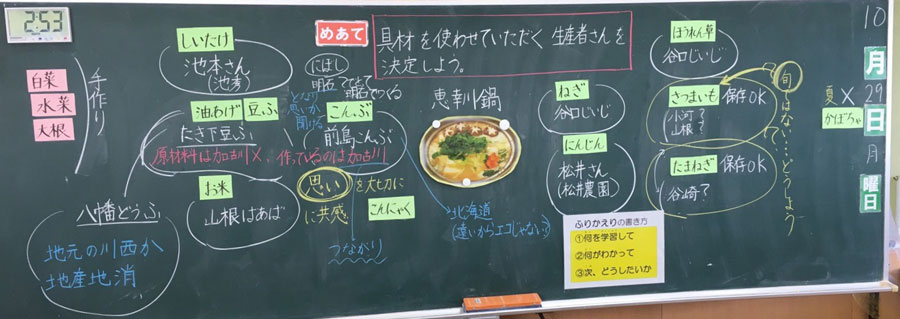 2:53
白菜
水菜
大根
手作り
しいたけ
池本さん
(池孝)
油あげ
豆ふ
たき下豆ふ
原材料は加古川×、作っているのは加古川
八幡どうふ
地元の川西か
地産地消
お米
山根はあば
めあて
具材を使わせていただく生産者さんを
決定しよう。
にぼし
となり
思いが
聞ける
こんぶ
前島こんぶ
思いを大切に
に共感
つながり
こんにゃく
北海道
(遠いからエコじゃない?)
恵幸川鍋
ねぎ
谷口じいじ
にんじん
松井さん
(松井農園)
ふりかえりの書き方
①何を学習して
②何がわかって
③次、どうしたいか
ほうれん草
谷口じいじ
さつまいも
保存OK
小河?
山根?
たまねぎ
保存OK
谷崎?
旬ではない…どうしよう
夏×
かぼちゃ
10
月
29
日
月
曜日